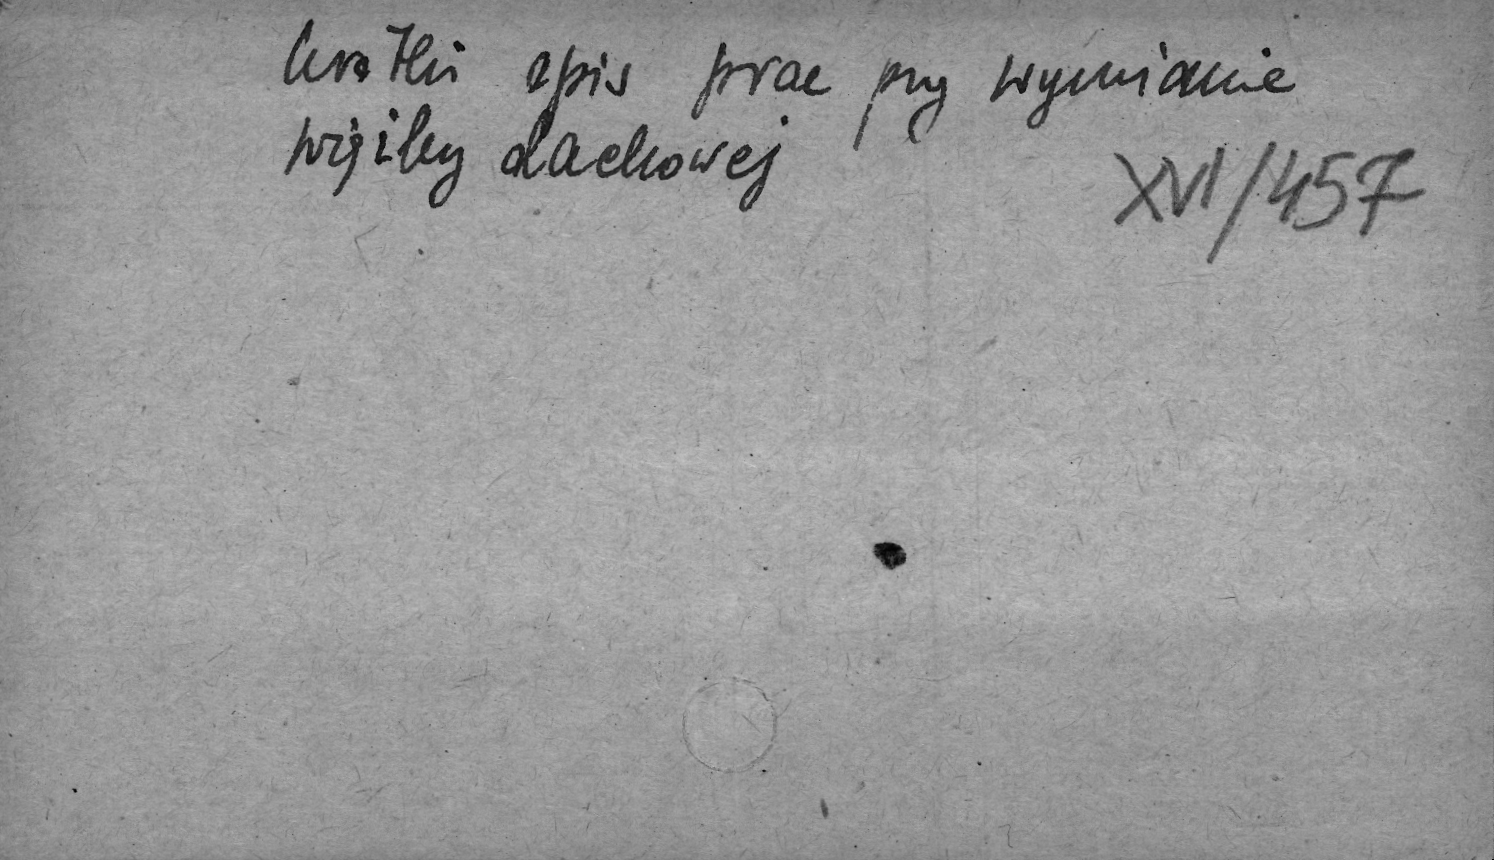 krótki opis prac przy wymianie
więźby dachowej
XVI/457